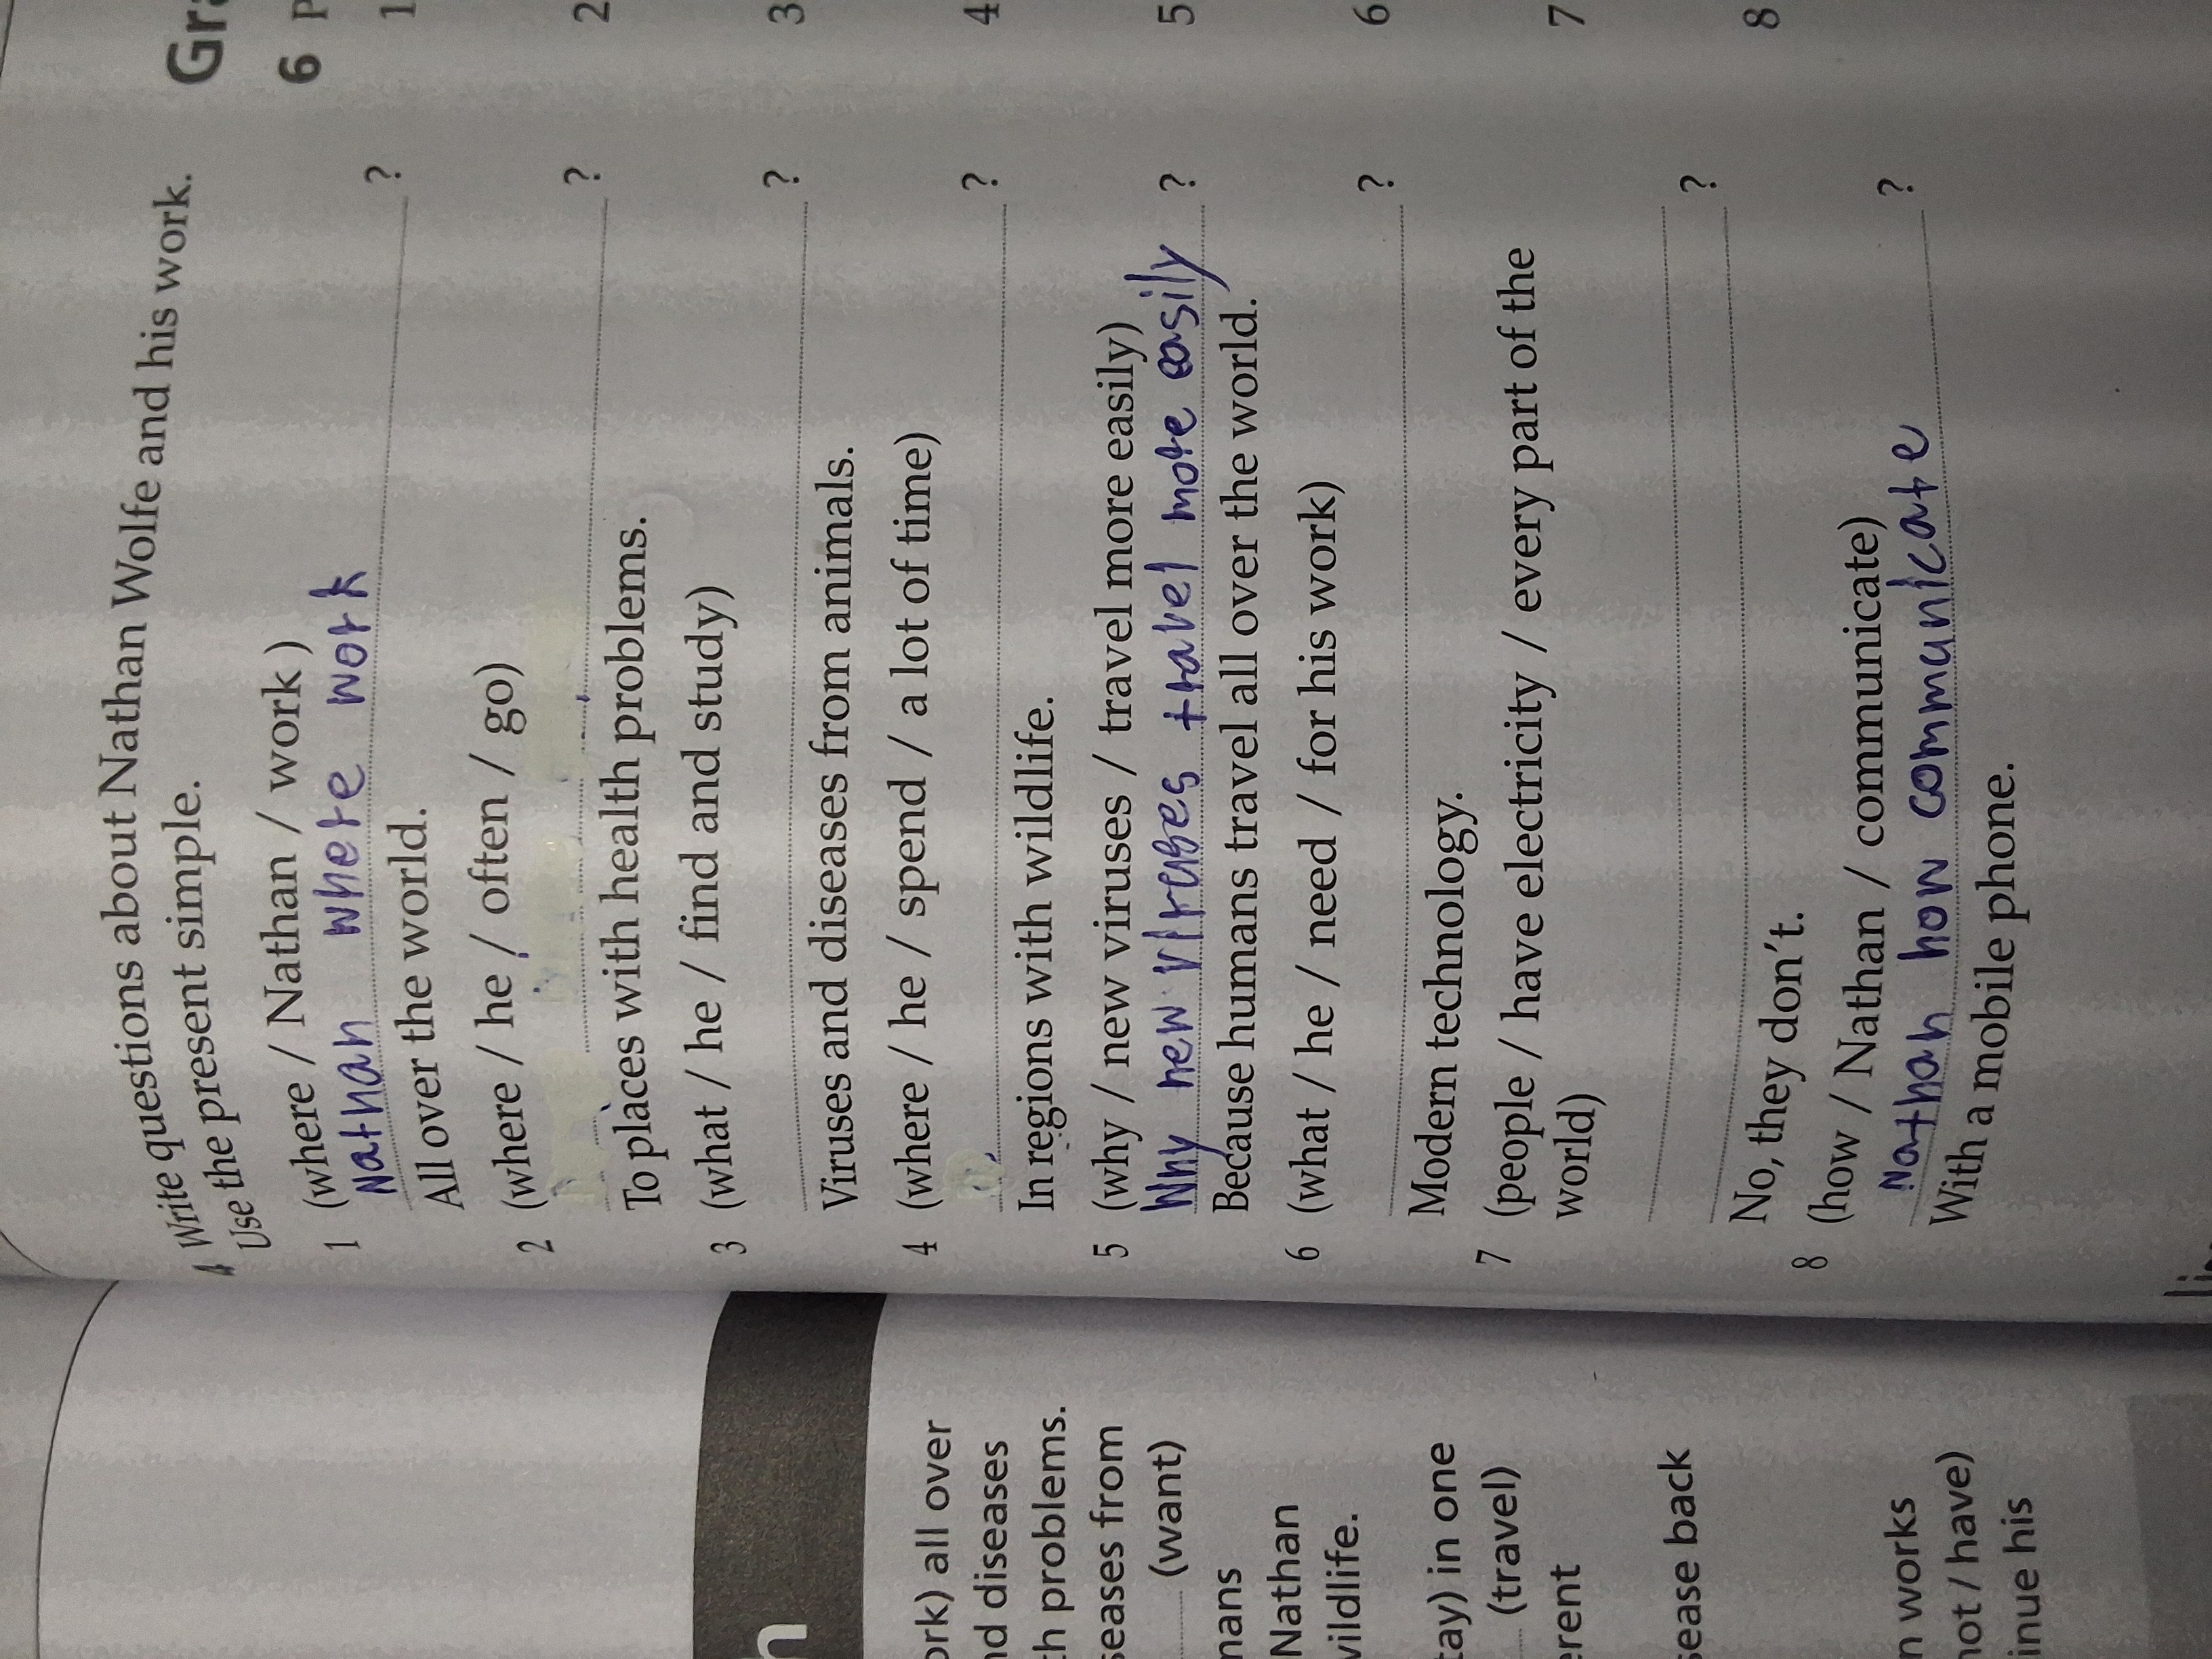 4 Write questions about Nathan Wolfe and his work.
Use the present simple.
1 (where / Nathan / work )
Nathan where work ?
All over the world.
2 (where / he / often / go)
?
To places with health problems.
3 (what / he / find and study)
?
Viruses and diseases from animals.
4 (where / he / spend / a lot of time)
?
In regions with wildlife.
5 (why / new viruses / travel more easily)
Why new viruses travel more easily ?
Because humans travel all over the world.
6 (what / he / need / for his work)
?
Modern technology.
7 (people / have electricity / every part of the
world)
?
No, they don't.
8 (how / Nathan / communicate)
Nathan how communicate ?
With a mobile phone.
all over
diseases
problems.
from
(want)
Nathan
in one
(travel)
back
works
/ have)
his
6
1
2
3
4
5
6
7
8